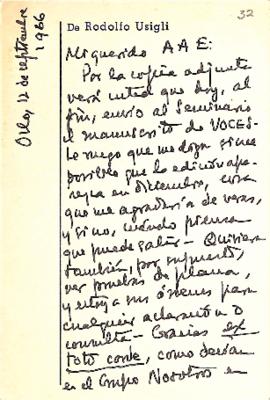 32
De Rodolfo Usigli
Oslo, 12 de septiembre
1966
Mi querido AAE:
Por la copia adjunta
verá usted que doy, al
fin, envío al Seminario
el manuscrito de VOCES-
Le ruego que me diga si es
posible que la edición apa-
rezca en diciembre, cosa
que me agradaría de veras,
y si no, cuándo piensa
que puede salir - Quisiera
también, por supuesto,
ver pruebas de plana,
y estoy a sus órdenes para
cualquier aclaración o
consulta - Gracias ex
toto corde, como decían
en el Grupo Nosotros en